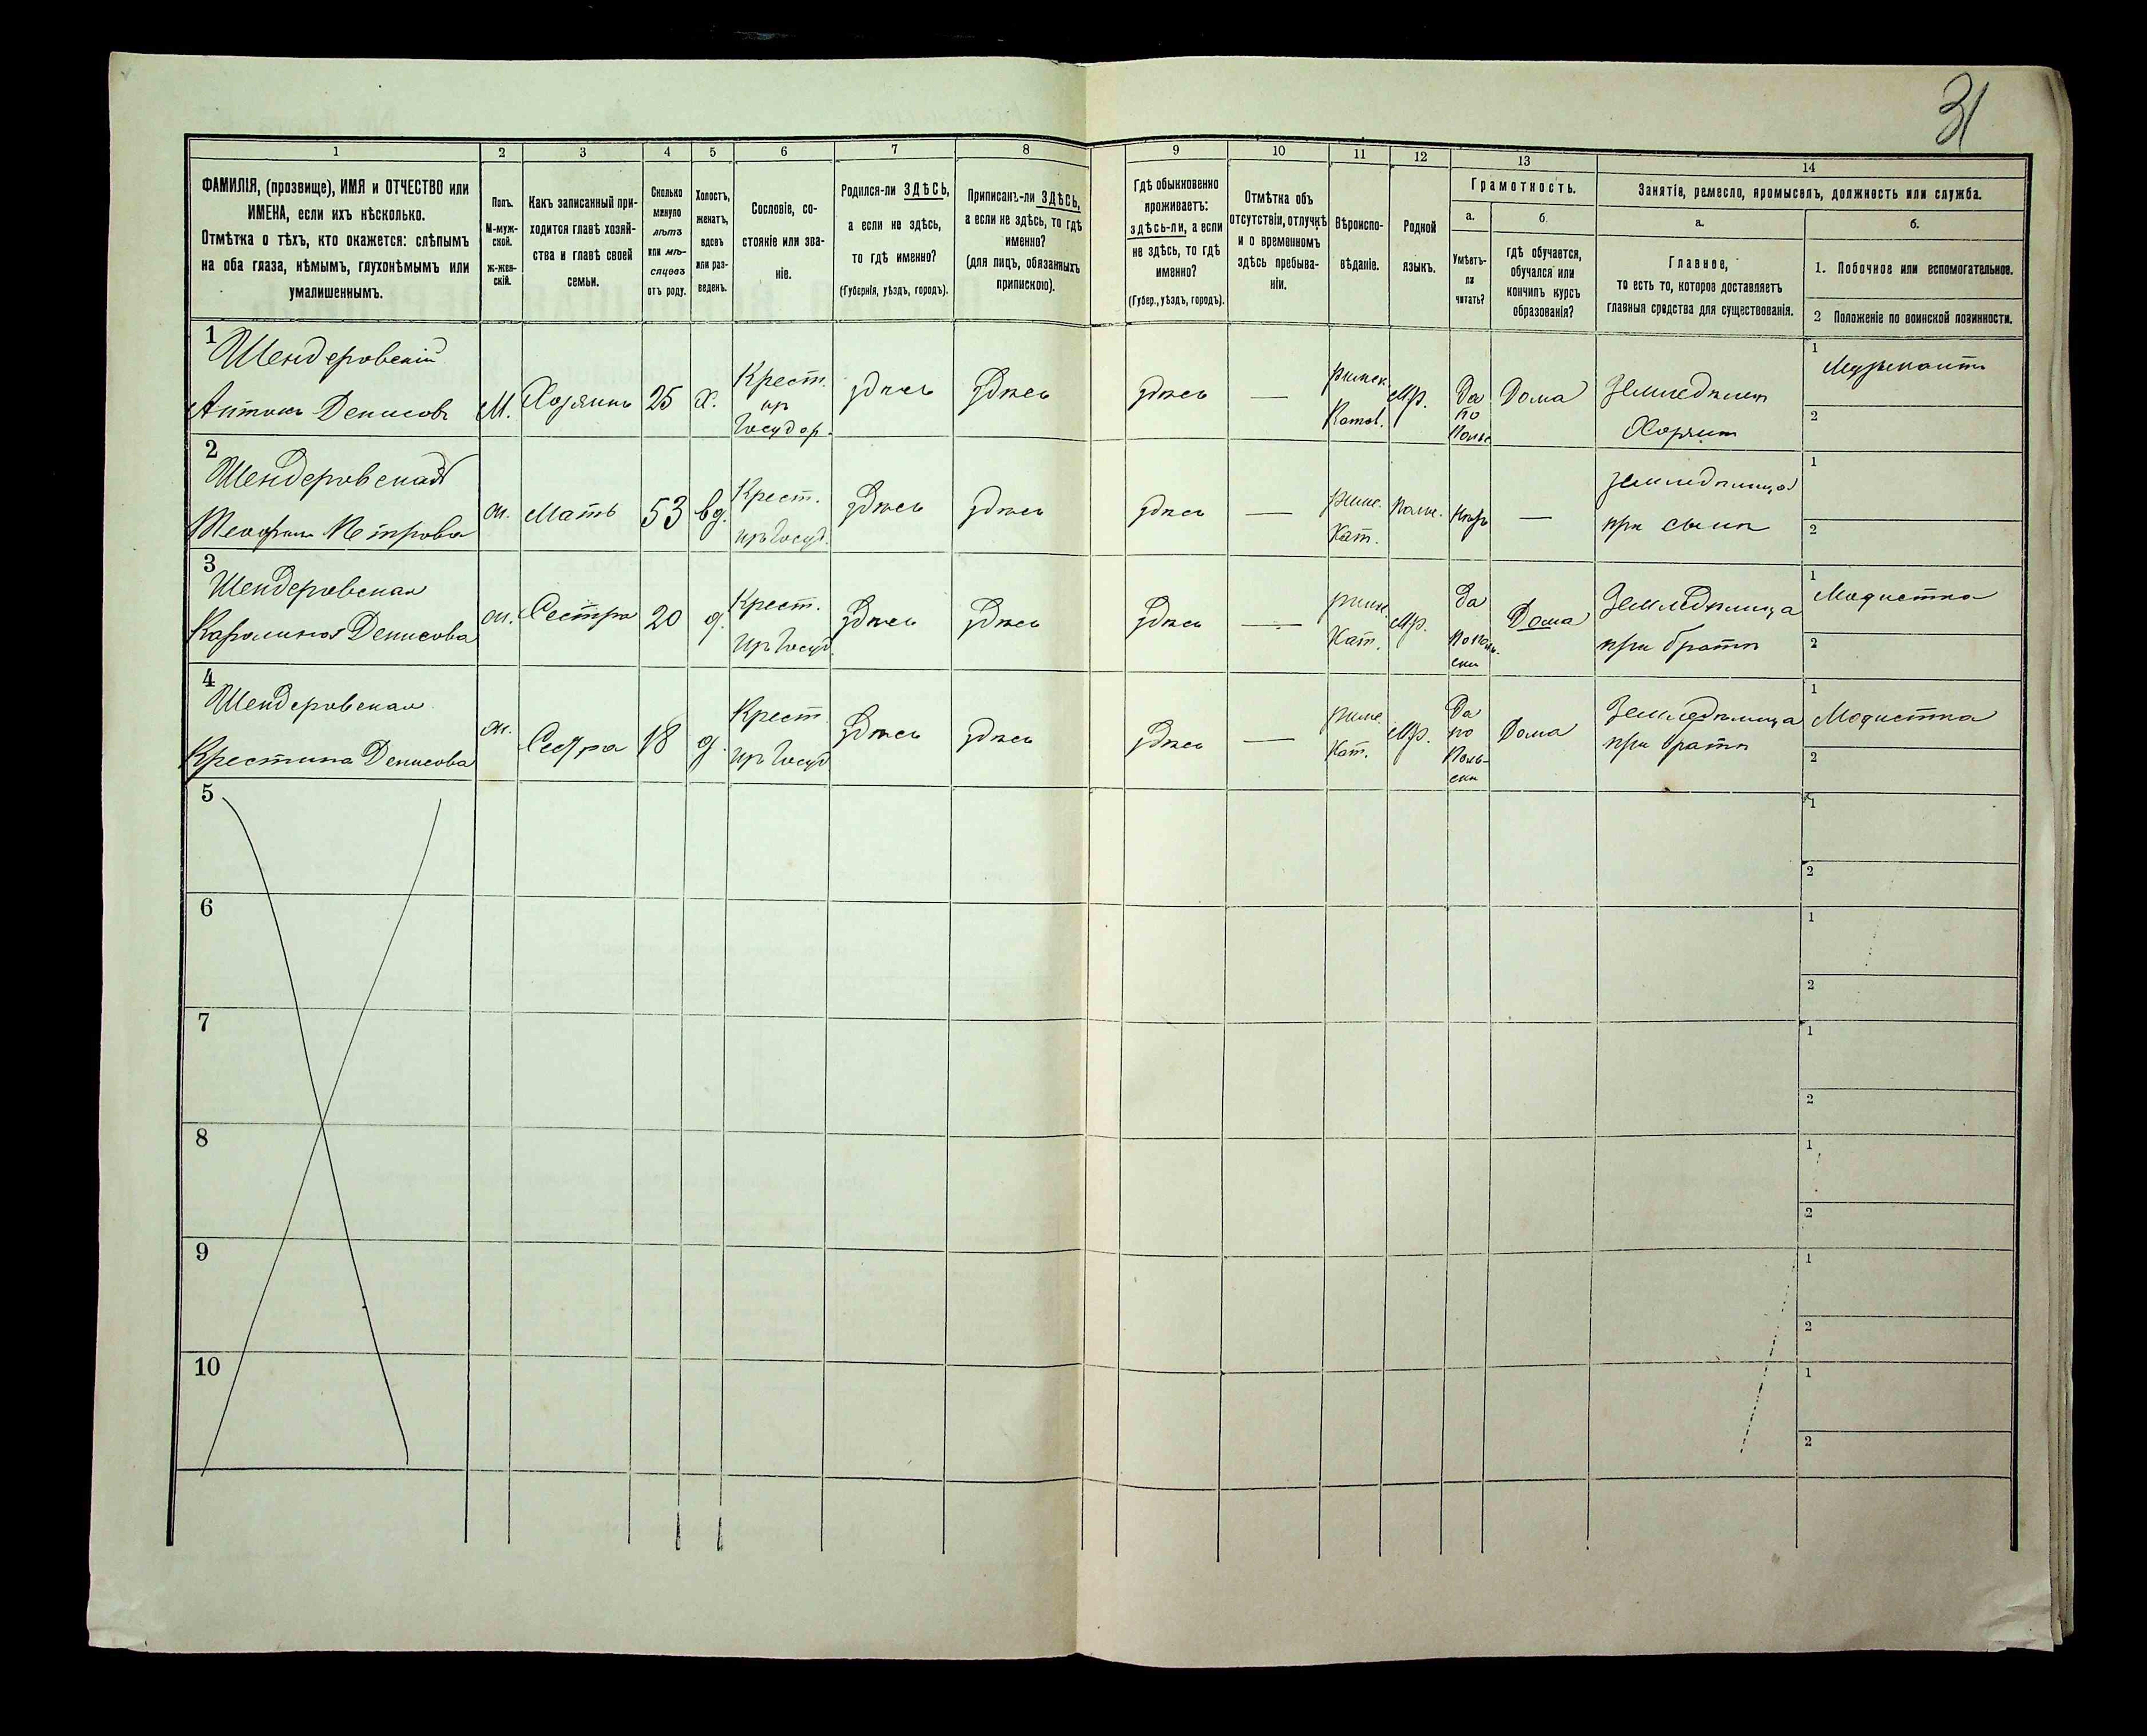 31
1 2 3 4 5 6 7 8 9 10 11 12 13 14
ФАМИЛІЯ, (прозвище), ИМЯ и ОТЧЕСТВО или
ИМЕНА, если ихъ нѣсколько.
Отмѣтка о тѣхъ, кто окажется: слѣпымъ
на оба глаза, нѣмымъ, глухонѣмымъ или
умалишеннымъ.
Полъ.
М-муж-
ской.
ж-жен-
скій.
Какъ записанный при-
ходится главѣ хозяй-
ства и главѣ своей
семьи.
Сколько
минуло
лѣтъ
или мѣ-
сяцевъ
отъ роду.
Холостъ,
женатъ,
вдовъ
или раз-
веденъ.
Сословіе, со-
стояніе или зва-
ніе.
Родился-ли ЗДѢСЬ,
а если не здѣсь,
то гдѣ именно?
(Губернія, уѣздъ, городъ).
Приписанъ-ли ЗДѢСЬ,
а если не здѣсь, то гдѣ
именно?
(для лицъ, обязанныхъ
припискою).
Гдѣ обыкновенно
проживаетъ:
здѣсь-ли, а если
не здѣсь, то гдѣ
именно?
(Губер., уѣздъ, городъ).
Отмѣтка объ
отсутствіи, отлучкѣ
и о временномъ
здѣсь пребыва-
ніи.
Вѣроиспо-
вѣданіе.
Родной
языкъ.
Грамотность.
а.
Умѣетъ-
ли
читать?
б.
гдѣ обучается,
обучался или
кончилъ курсъ
образованія?
Занятіе, ремесло, промыселъ, должность или служба.
а.
Главное,
то есть то, которое доставляетъ
главныя средства для существованія.
б.
1. Побочное или вспомогательное.
2 Положеніе по воинской повинности.
1
Шендеровскій
Антонъ Денисовъ
М.
Хозяинъ
25
Х.
Крест.
из
Государ.
здѣсь
здѣсь
здѣсь
—
римск.
Катол.
Мр.
Да
по
Польс
Дома
земледѣлец
Хозяин
1
Музыкантъ
2
2
Шендеровская
Петрова
ж.
Мать
53
вд.
Крест.
изъ Госуд.
здѣсь
здѣсь
здѣсь
—
римс.
Кат.
Польс.
—
земледѣлица
при сынѣ
1
2
3
Шендеровская
Каролина Денисова
ж.
Сестра
20
д.
Крест.
изъ Госуд.
здѣсь
здѣсь
здѣсь
—
римс.
Кат.
Мр.
Да
По Поль-
ски
Дома
Земледѣлица
при братѣ
1
Модистка
2
4
Шендеровская
Крестина Денисова
ж.
Сестра
18
д.
Крест
изъ Госуд
здѣсь
здѣсь
здѣсь
—
римс.
Кат.
Мр.
Да
по
Поль-
ски
Дома
Земледѣлица
при братѣ
1
Модистка
2
5
1
2
6
1
2
7
1
2
8
1
2
9
1
2
10
1
2